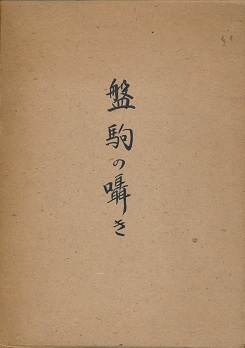 盤駒の囁き